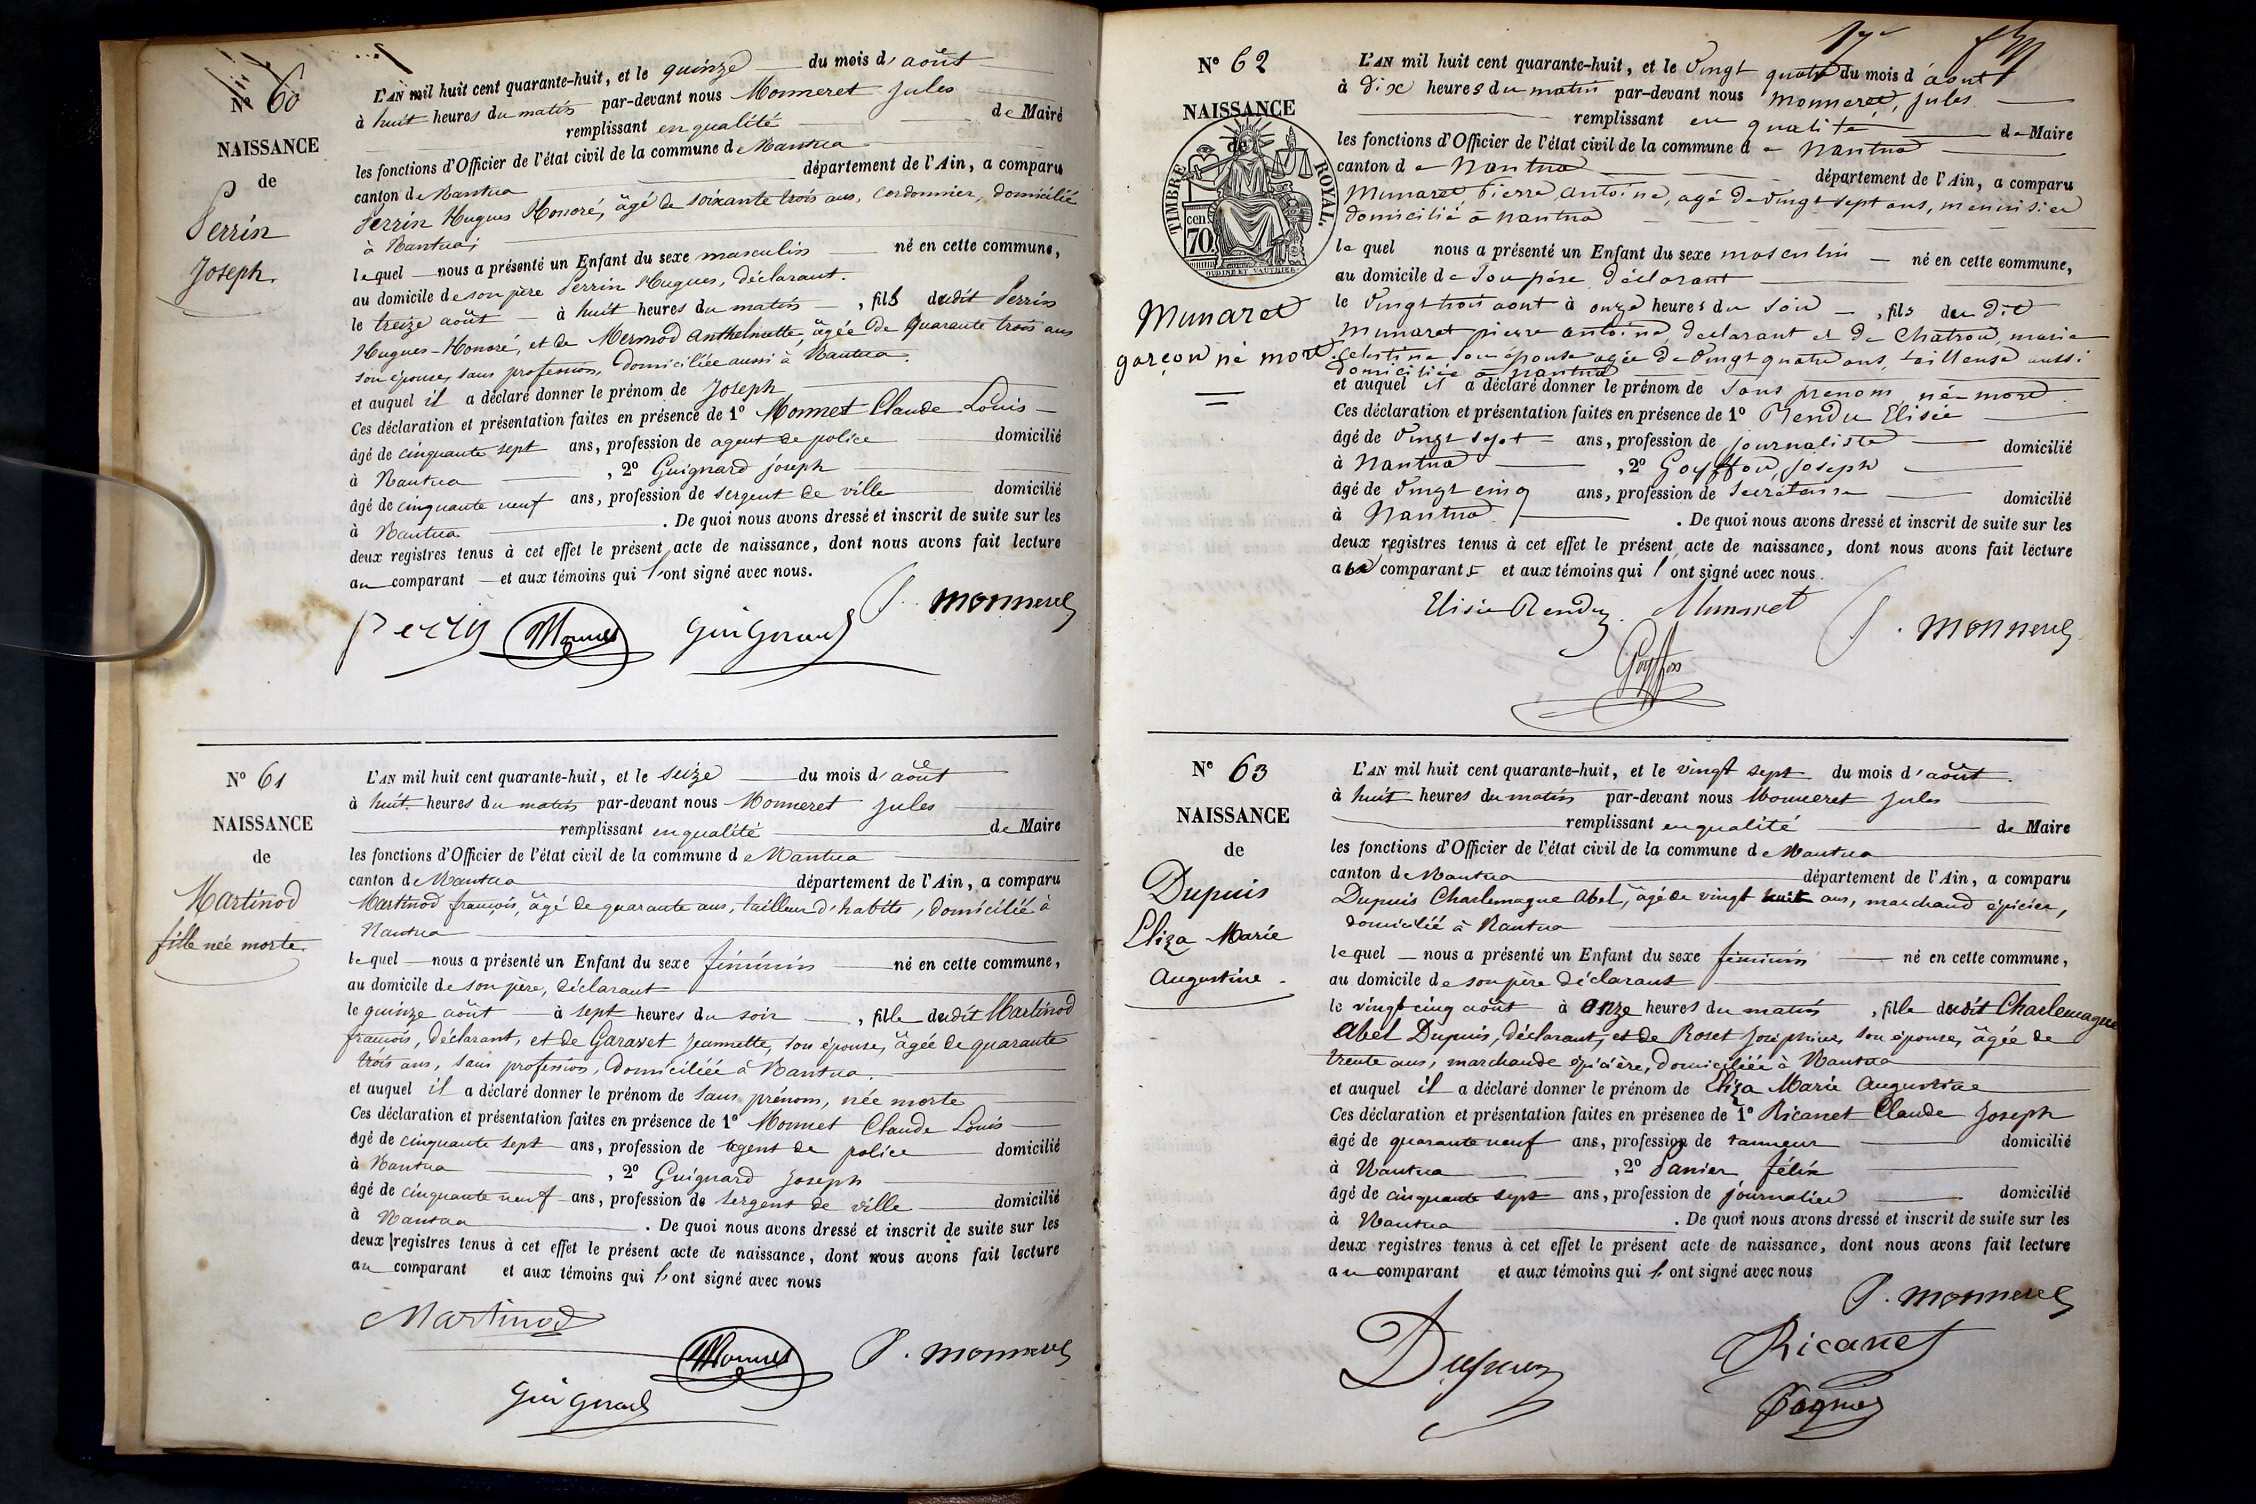 N° 60
NAISSANCE
de
Perrin
Joseph.
L'AN mil huit cent quarante-huit, et le quinze du mois d'août
à huit heures du matin par-devant nous Monneret Jules
remplissant en qualité de Maire
les fonctions d'Officier de l'état civil de la commune de Nantua
canton de Nantua département de l'Ain, a comparu
Perrin Hugues Honoré, âgé de soixante trois ans, cordonnier, domicilié
à Nantua;
lequel nous a présenté un Enfant du sexe masculin né en cette commune,
au domicile de son père Perrin Hugues, déclarant.
le treize août à huit heures du matin, fils dudit Perrin
Hugues-Honoré, et de Mermod Anthelmette, âgée de quarante trois ans
son épouse, sans profession, domiciliée aussi à Nantua.
et auquel il a déclaré donner le prénom de Joseph
Ces déclaration et présentation faites en présence de 1° Monnet Claude Louis
âgé de cinquante sept ans, profession de agent de police domicilié
à Nantua, 2° Guignard joseph
âgé de cinquante neuf ans, profession de sergent de ville domicilié
à Nantua. De quoi nous avons dressé et inscrit de suite sur les
deux registres tenus à cet effet le présent acte de naissance, dont nous avons fait lecture
au comparant et aux témoins qui l'ont signé avec nous.
J. Monneret
Perrin Monnet Guignard
N° 61
NAISSANCE
de
Martinod
fille née morte.
L'AN mil huit cent quarante-huit, et le seize du mois d'août
à huit heures du matin par-devant nous Monneret Jules
remplissant en qualité de Maire
les fonctions d'Officier de l'état civil de la commune de Nantua
canton de Nantua département de l'Ain, a comparu
Martinod françois, âgé de quarante ans, tailleur d'habits, domicilié à
Nantua
lequel nous a présenté un Enfant du sexe féminin né en cette commune,
au domicile de son père, déclarant
le quinze août à sept heures du soir, fille dudit Martinod
françois, déclarant, et de Garavet Jeannette, son épouse, âgée de quarante
trois ans, sans profession, domiciliée à Nantua.
et auquel il a déclaré donner le prénom de sans prénom, née morte
Ces déclaration et présentation faites en présence de 1° Monnet Claude Louis
âgé de cinquante sept ans, profession de agent de police domicilié
à Nantua, 2° Guignard Joseph
âgé de cinquante neuf ans, profession de sergent de ville domicilié
à Nantua. De quoi nous avons dressé et inscrit de suite sur les
deux registres tenus à cet effet le présent acte de naissance, dont nous avons fait lecture
au comparant et aux témoins qui l'ont signé avec nous
Martinod
Monnet J. Monneret
Guignard
17
N° 62
NAISSANCE
de
TIMBRE ROYAL.
70 cen.
Munaret
garçon né mort.
L'AN mil huit cent quarante-huit, et le vingt quatre du mois d'aout
à dix heures du matin par-devant nous Monneret, Jules
remplissant en qualité de Maire
les fonctions d'Officier de l'état civil de la commune de Nantua
canton de Nantua département de l'Ain, a comparu
Munaret Pierre antoine, agé de vingt sept ans, menuisier
domicilié à nantua
lequel nous a présenté un Enfant du sexe masculin né en cette commune,
au domicile de Son père déclarant
le vingt trois aout à onze heures du soir, fils du dit
Munaret pierre antoine, declarant et de Chatron, marie
Celestine son épouse agée de vingt quatre ans, tailleuse aussi
domiciliée à nantua
et auquel il a déclaré donner le prénom de sans prenom, né mort.
Ces déclaration et présentation faites en présence de 1° Rendu Elisée
âgé de vingt sept ans, profession de journaliste domicilié
à Nantua, 2° Goyffon, Joseph
âgé de vingt cinq ans, profession de Secrétaire domicilié
à Nantua. De quoi nous avons dressé et inscrit de suite sur les
deux registres tenus à cet effet le présent acte de naissance, dont nous avons fait lecture
au comparant et aux témoins qui l'ont signé avec nous.
Elisée Rendu Munaret J. Monneret
Goyffon
N° 63
NAISSANCE
de
Dupuis
Eliza Marie
Augustine.
L'AN mil huit cent quarante-huit, et le vingt sept du mois d'août.
à huit heures du matin par-devant nous Monneret Jules
remplissant en qualité de Maire
les fonctions d'Officier de l'état civil de la commune de Nantua
canton de Nantua département de l'Ain, a comparu
Dupuis Charlemagne Abel, âgé de vingt huit ans, marchand épicier,
domicilié à Nantua
lequel nous a présenté un Enfant du sexe féminin né en cette commune,
au domicile de son père déclarant
le vingt cinq août à onze heures du matin, fille dudit Charlemagne
Abel Dupuis, déclarant, et de Roset Joséphine, son épouse, âgée de
trente ans, marchande épicière, domiciliée à Nantua
et auquel il a déclaré donner le prénom de Eliza Marie Augustine
Ces déclaration et présentation faites en présence de 1° Ricanet Claude Joseph
âgé de quarante neuf ans, profession de tanneur domicilié
à Nantua, 2° Panier félix
âgé de cinquante sept ans, profession de journalier domicilié
à Nantua. De quoi nous avons dressé et inscrit de suite sur les
deux registres tenus à cet effet le présent acte de naissance, dont nous avons fait lecture
au comparant et aux témoins qui l'ont signé avec nous
J. Monneret
Dupuis Ricanet